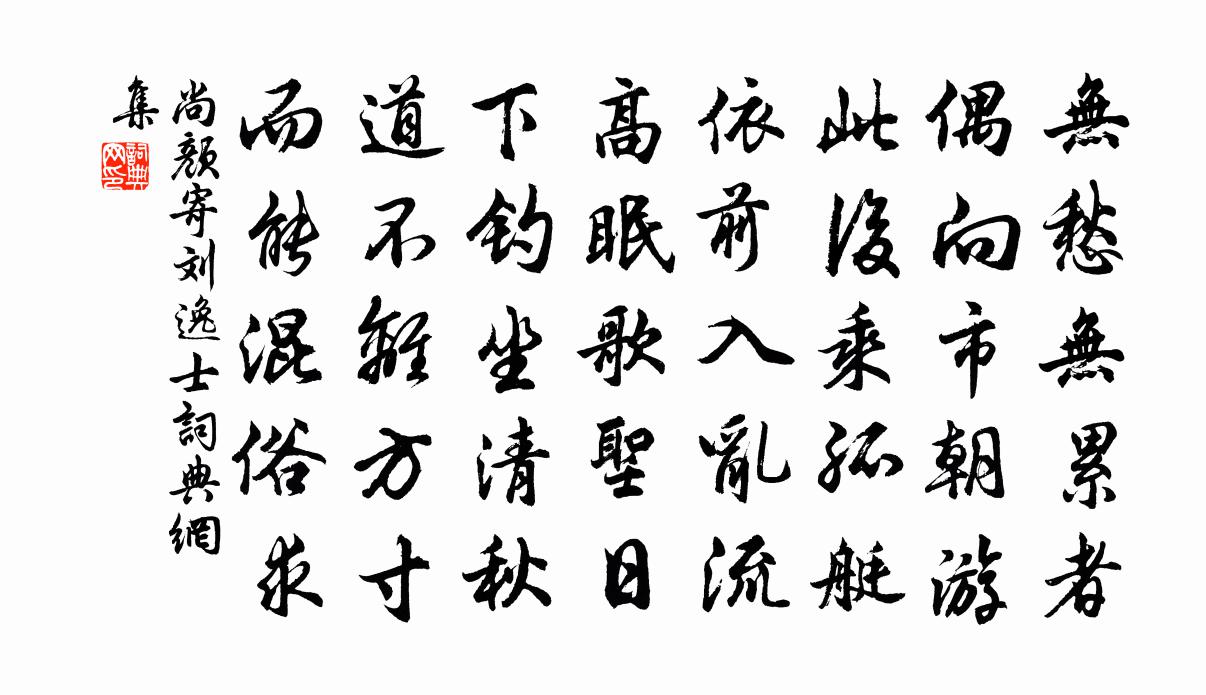 無愁無累者
偶向市朝游
此後乘孤艇
依前入亂流
高眠歌聖日
下釣坐清秋
道不離方寸
而能混俗求
尚顏寄刘逸士詞典網
集
詞典
网印